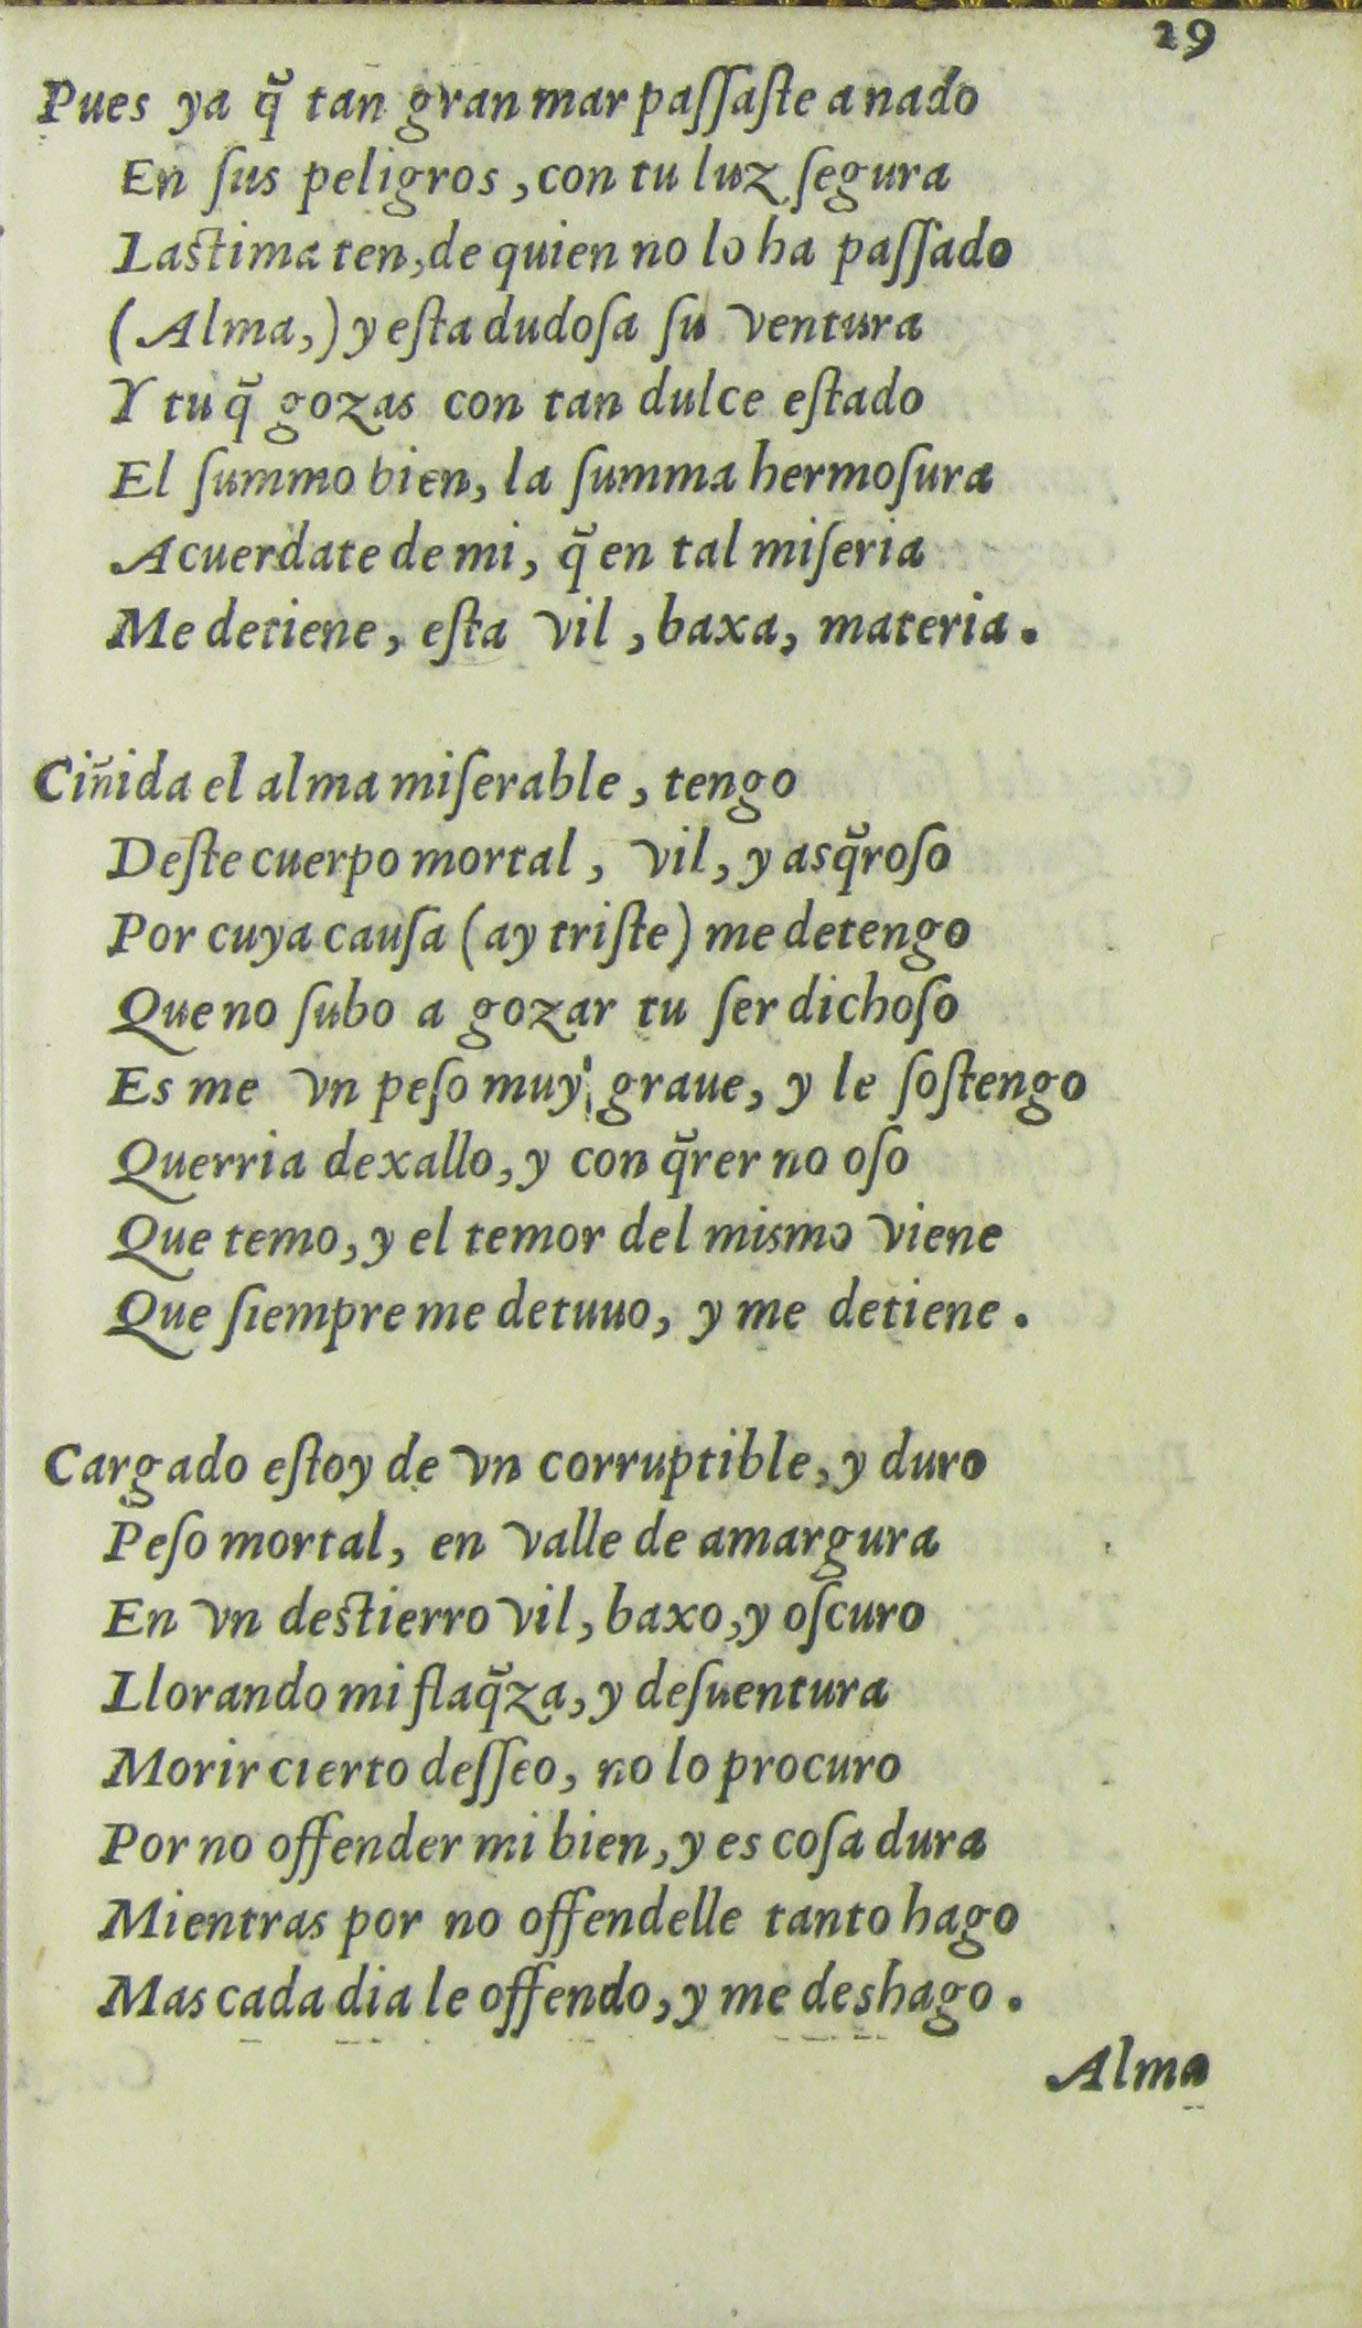 29
Pues ya q̃ tan gran mar paſſaſte a nado
En ſus peligros, con tu luz ſegura
Lastima ten, de quien no lo ha paſſado
(Alma,) y eſta dudoſa ſu ventura
Y tu q̃ gozas con tan dulce eſtado
El ſummo bien, la ſumma hermoſura
Acuerdate de mi, q̃ en tal miſeria
Me detiene, eſta vil, baxa, materia.
Ciñida el alma miſerable, tengo
Deſte cuerpo mortal, vil, y asq̃roſo
Por cuya cauſa (ay triſte) me detengo
Que no ſubo a gozar tu ſer dichoſo
Es me vn peſo muy graue, y le ſoſtengo
Querria dexallo, y con q̃rer no oſo
Que temo, y el temor del mismo viene
Que ſiempre me detuuo, y me detiene.
Cargado eſtoy de vn corruptible, y duro
Peſo mortal, en valle de amargura
En vn destierro vil, baxo, y oſcuro
Llorando mi flaq̃za, y deſuentura
Morir cierto deſſeo, no lo procuro
Por no offender mi bien, y es coſa dura
Mientras por no offendelle tanto hago
Mas cada dia le offendo, y me deshago.
Alma